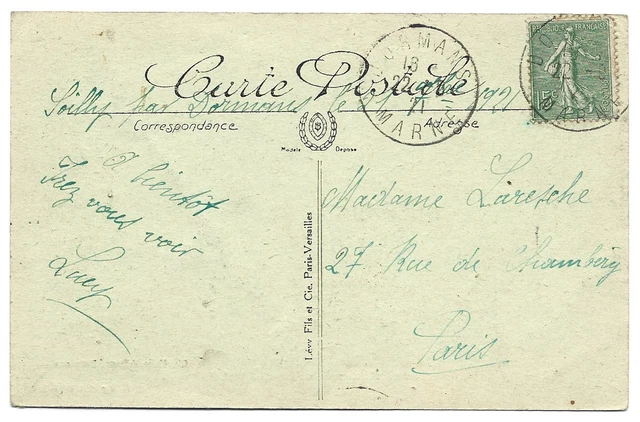 Carte Postale
Soilly par Dormans le 21 1921
Correspondance
Adresse
Modèle Déposé
DORMANS
18
22
11
MARNE
RÉPUBLIQUE FRANÇAISE
15c
A bientôt
Irez vous voir
Lucy
Madame Laresche
27 Rue de Chambéry
Paris
Lévy Fils et Cie, Paris-Versailles